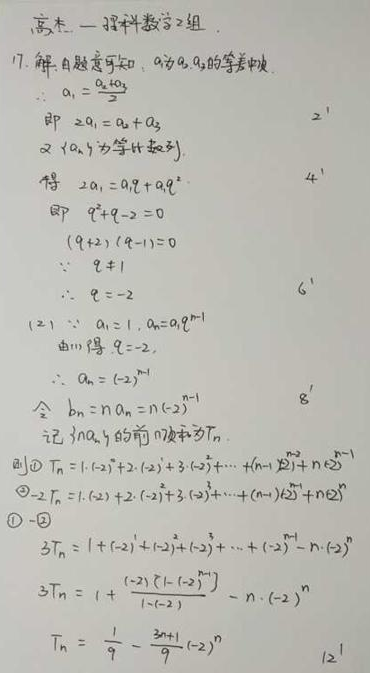 高杰 — 理科数学2组.
17. 解: 由题意可知, a₁为a₂.a₃的等差中项.
∴ a₁ = (a₂+a₃)/2
即 2a₁ = a₂ + a₃ 2'
又 {aₙ} 为等比数列,
得 2a₁ = a₁q + a₁q² 4'
即 q²+q-2=0
(q+2)(q-1)=0
∵ q≠1
∴ q=-2 6'
(2) ∵ a₁=1, aₙ=a₁qⁿ⁻¹
由(1)得 q=-2,
∴ aₙ=(-2)ⁿ⁻¹
令 bₙ=naₙ=n(-2)ⁿ⁻¹ 8'
记{naₙ}的前n项和为Tₙ.
则① Tₙ=1·(-2)⁰+2·(-2)¹+3·(-2)²+⋯+(n-1)(-2)ⁿ⁻²+n(-2)ⁿ⁻¹
② -2Tₙ=1·(-2)+2·(-2)²+3·(-2)³+⋯+(n-1)(-2)ⁿ⁻¹+n(-2)ⁿ
①-②
3Tₙ=1+(-2)¹+(-2)²+(-2)³+⋯+(-2)ⁿ⁻¹-n·(-2)ⁿ
3Tₙ = 1 + (-2)[1-(-2)ⁿ⁻¹]/(1-(-2)) - n·(-2)ⁿ
Tₙ = 1/9 - (3n+1)/9 (-2)ⁿ 12'